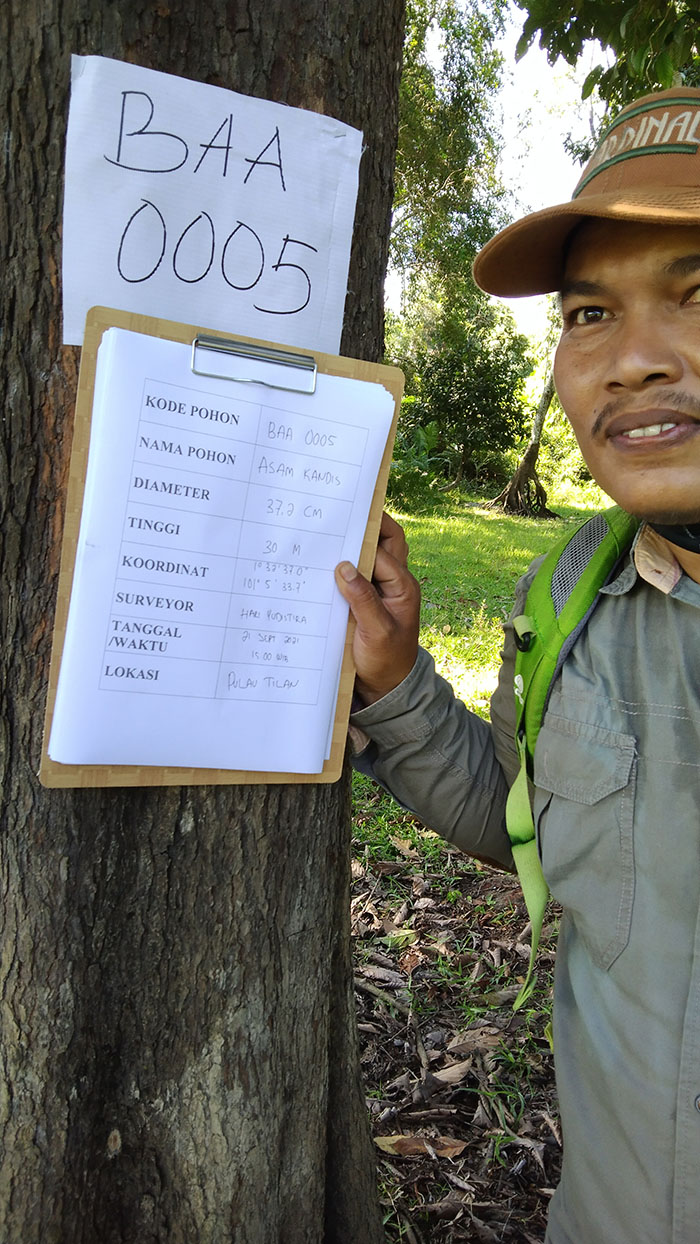 BAA
0005
KODE POHON BAA 0005
NAMA POHON ASAM KANDIS
DIAMETER 37,2 CM
TINGGI 30 M
KOORDINAT 1° 32' 37.0"
101° 5' 33.7"
SURVEYOR HARI
TANGGAL 21 SEPT 2021
/WAKTU 15.00 WIB
LOKASI PULAU TILAN